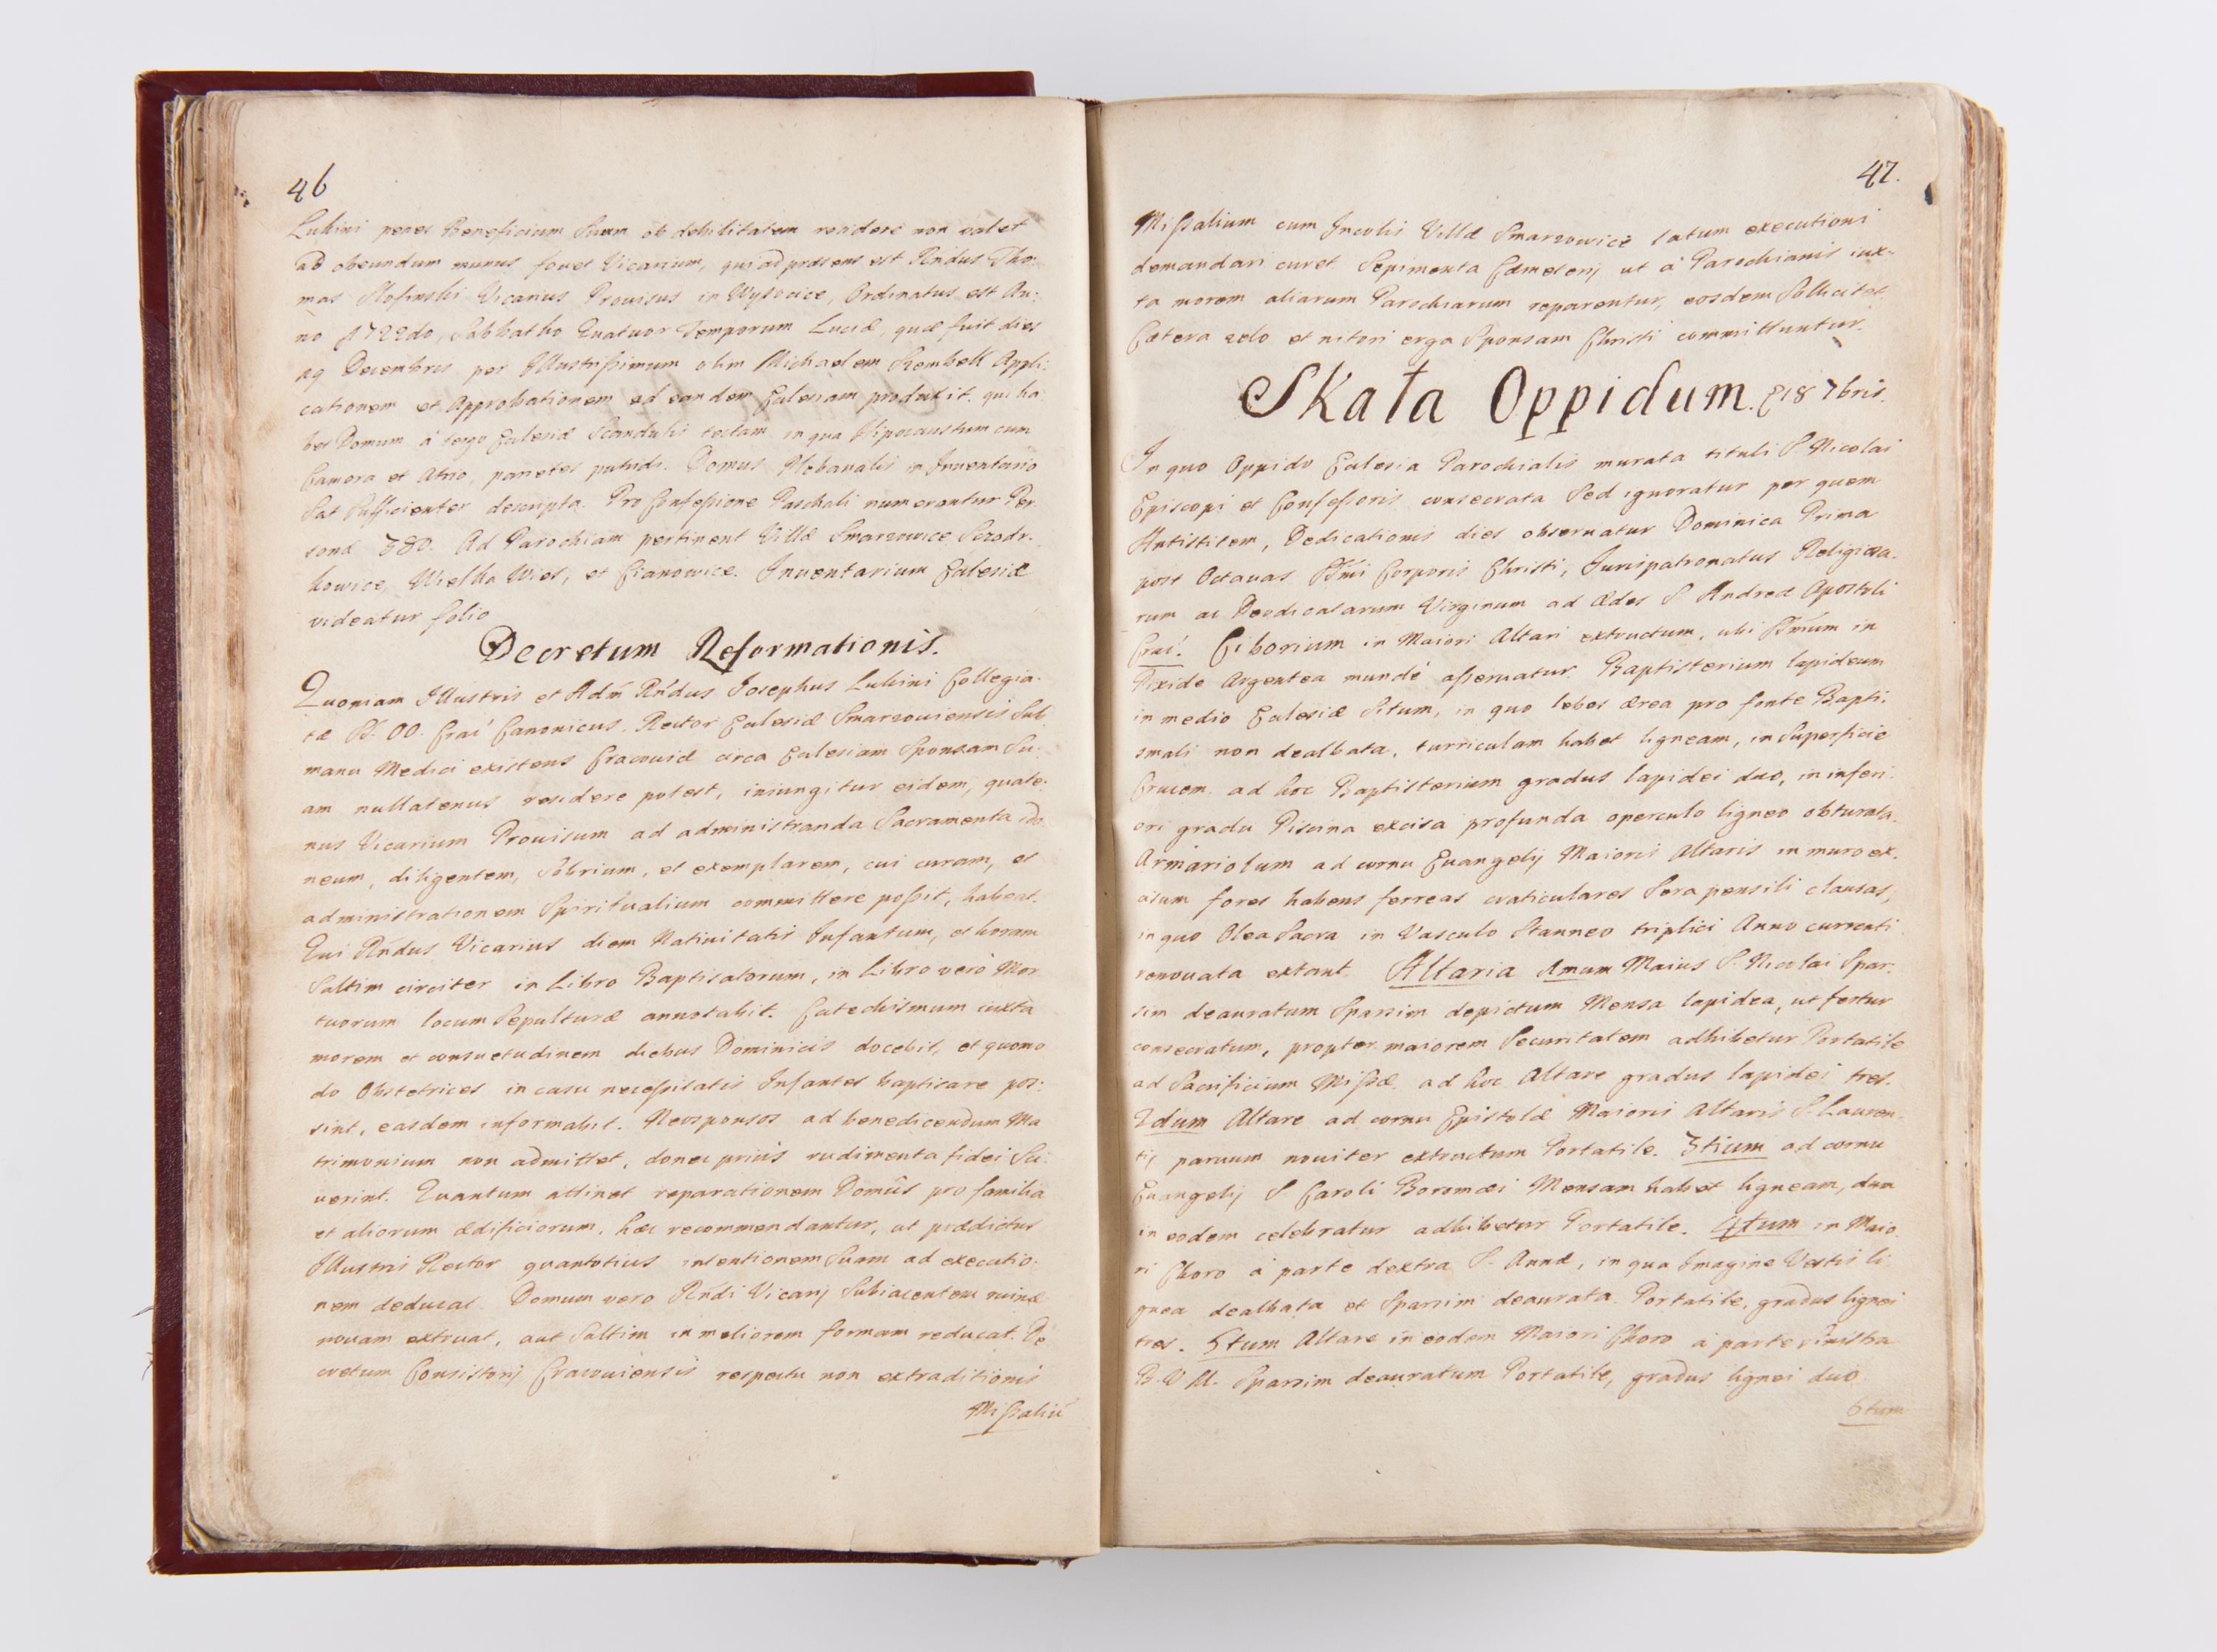 46
Lukini penes Beneficium Suum ob debilitatem residere non valet
ad obeundum munus fovet Vicarium, qui ad præsens est Rñdus Tho:
mas Vicarius Provisus in Wysocice, Ordinatus est An:
no 1722do, Sabbatho Quatuor Temporum Luciæ, quæ fuit dies
19 Decembris per Illustrißimum olim Michaelem Szembek Appli:
cationem et Approbationem ad eandem Ecclesiam produxit. qui ha
bet Domum à tergo Ecclesiæ Scandulis tectam in qua Hipocaustum cum
Camera et Atrio, parietes putridi. Domus Plebanalis in Inventario
Sat Sufficienter descripta. Pro Confeßione Paschali numerantur Per
sonæ 380. Ad Parochiam pertinent Villæ Smarzowice Sczodr:
kowice, Wielka Wies, et Cianowice. Inventarium Ecclesiæ
videatur folio
Decretum Reformationis.
Quoniam Illustris et Adm̃ Rñdus Josephus Lukini Collegia:
tæ SS. OO. Crac̃ Canonicus, Rector Ecclesiæ Smarzoviensis Sub
manu Medici existens Cracoviæ circa Ecclesiam Sponsam Su:
am nullatenus residere potest, iniungitur eidem, quate:
nus Vicarium Provisum ad administranda Sacramenta ido
neum, diligentem, Sobrium, et exemplarem, cui curam, et
administrationem Spiritualium committere poßit, habeat.
Qui Rñdus Vicarius diem Nativitatis Infantum, et horam
Saltim circiter in Libro Baptisatorum, in Libro verò Mor
tuorum locum Sepulturæ annotabit. Catechismum iuxta
morem et consuetudinem diebus Dominicis docebit, et quomo
do Obstetrices in casu neceßitatis Infantes baptisare pos:
sint, easdem informabit. Neosponsos ad benedicendum Ma
trimonium non admittet, donec priùs rudimenta fidei Sci:
verint. Quantum attinet reparationem Domûs pro familia
et aliorum ædificiorum, hæc recommendantur, ut prædictus
Illustris Rector quantotius intentionem Suam ad executio:
nem deducat. Domum vero Rñdi Vicarij Subiacentem ruinæ
novam extruat, aut Saltim in meliorem formam reducat. De
cretum Consistorij Cracoviensis respectu non extraditionis
Mißaliũ
47.
Mißalium cum Incolis Villæ Smarzowice latum executioni
demandari curet. Sepimenta Cæmeterij ut à Parochianis iux:
ta morem aliarum Parochiarum reparentur, eosdem Sollicitet.
Cætera zelo et nitori erga Sponsam Christi committuntur.
Skała Oppidum. 18 7bris.
In quo Oppido Ecclesia Parochialis murata tituli S. Nicolai
Episcopi et Confeßoris consecrata Sed ignoratur per quem
Antistitem, Dedicationis dies observatur Dominica Prima
post Octavas SSmi Corporis Christi, Jurispatronatus Religiosa:
rum ac Deodicatarum Virginum ad Ædes S. Andreæ Apostoli
Crac̃. Ciborium in Maiori Altari extructum, ubi SSmum in
Pixide Argentea mundè aßervatur. Baptisterium lapideum
in medio Ecclesiæ Situm, in quo lebes ærea pro fonte Bapti:
smali non dealbata, turriculam habet ligneam, in Superficie
Crucem. ad hoc Baptisterium gradus lapidei duo, in inferi:
ori gradu Piscina excisa profunda operculo ligneo obturata.
Armariolum ad cornu Evangelij Maioris Altaris in muro ex:
cisum fores habens ferreas craticulares Sera pensili clausas,
in quo Olea Sacra in Vasculo Stanneo triplici Anno currenti
renovata extant. Altaria 1mum Maius S. Nicolai Spar:
sim deauratum Sparsim depictum Mensa lapidea, ut fertur
consecratum, propter maiorem Securitatem adhibetur Portatile
ad Sacrificium Mißæ. ad hoc Altare gradus lapidei tres.
2dum Altare ad cornu Epistolæ Maioris Altaris S. Lauren:
tij parvum noviter extructum Portatile. 3tium ad cornu
Evangelij S. Caroli Boromæi Mensam habet ligneam, dum
in eodem celebratur adhibetur Portatile. 4tum in Maio
ri Choro à parte dextra S. Annæ, in qua Imagine Vestis li
gnea dealbata et Sparsim deaurata. Portatile, gradus lignei
tres. 5tum Altare in eodem Maiori Choro à parte sinistra
B.V.M. Sparsim deauratum Portatile, gradus lignei duo
6tum